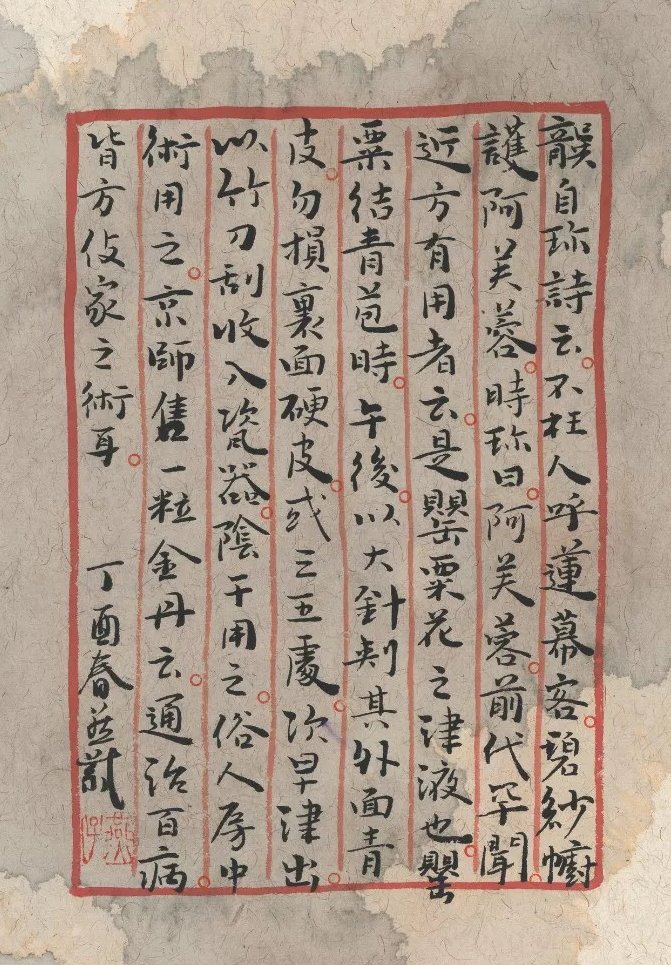 龔自珍詩云不枉人呼蓮幕客碧紗幮
護阿芙蓉時珍曰阿芙蓉前代罕聞
近方有用者云是罌粟花之津液也罌
粟結青苞時午後以大針刺其外面青
皮勿損裏面硬皮或三五處次早津出
以竹刀刮收入瓷器陰干用之俗人房中
術用之京師售一粒金丹云通治百病
皆方伎家之術耳 丁酉春